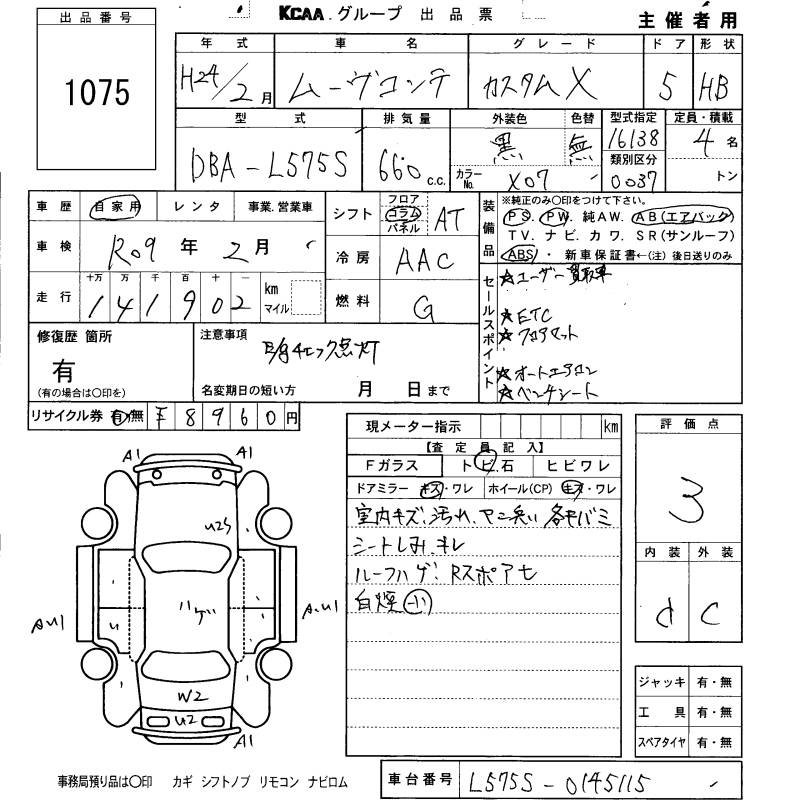 KCAA.グループ 出品票
主催者用
出品番号
1075
年式 車名 グレード ドア 形状
H24/2月 ムーヴコンテ カスタムX 5 HB
型式 排気量 外装色 色替 型式指定 定員・積載
DBA-L575S 660c.c. 黒 無 16138 4名
カラーNo. X07 類別区分 0037 トン
車歴 自家用 レンタ 事業.営業車
車検 R09年2月
走行 十万 万 千 百 十 一 km マイル
141902
シフト フロア コラム パネル AT
冷房 AAC
燃料 G
装備品
※純正のみ〇印をつけて下さい。
PS. PW. 純AW. AB(エアバック)
TV. ナビ. カワ. SR(サンルーフ)
ABS ・ 新車保証書←(注) 後日送りのみ
セールスポイント
☆ユーザー買取車
☆ETC
☆フロアマット
☆オートエアコン
☆ベンチシート
修復歴 箇所
有
(有の場合は〇印を)
注意事項
E/gチェック点灯
名変期日の短い方 月 日まで
リサイクル券 有・無 ¥8960円
現メーター指示 km
【査定員記入】
Fガラス トビ.石 ヒビワレ
ドアミラー キズ・ワレ ホイール(CP) キズ・ワレ
室内キズ、汚れ、ヤニ臭い
シートしみ、キレ
ルーフハゲ、Rスポアセ
白煙小
評価点
3
内装 外装
d C
ジャッキ 有・無
工具 有・無
スペアタイヤ 有・無
A1 A1
U2S
A.U1 U ハゲ A.U1
W2
U2
A1
事務局預り品は〇印 カギ シフトノブ リモコン ナビロム
車台番号 L575S-0145115